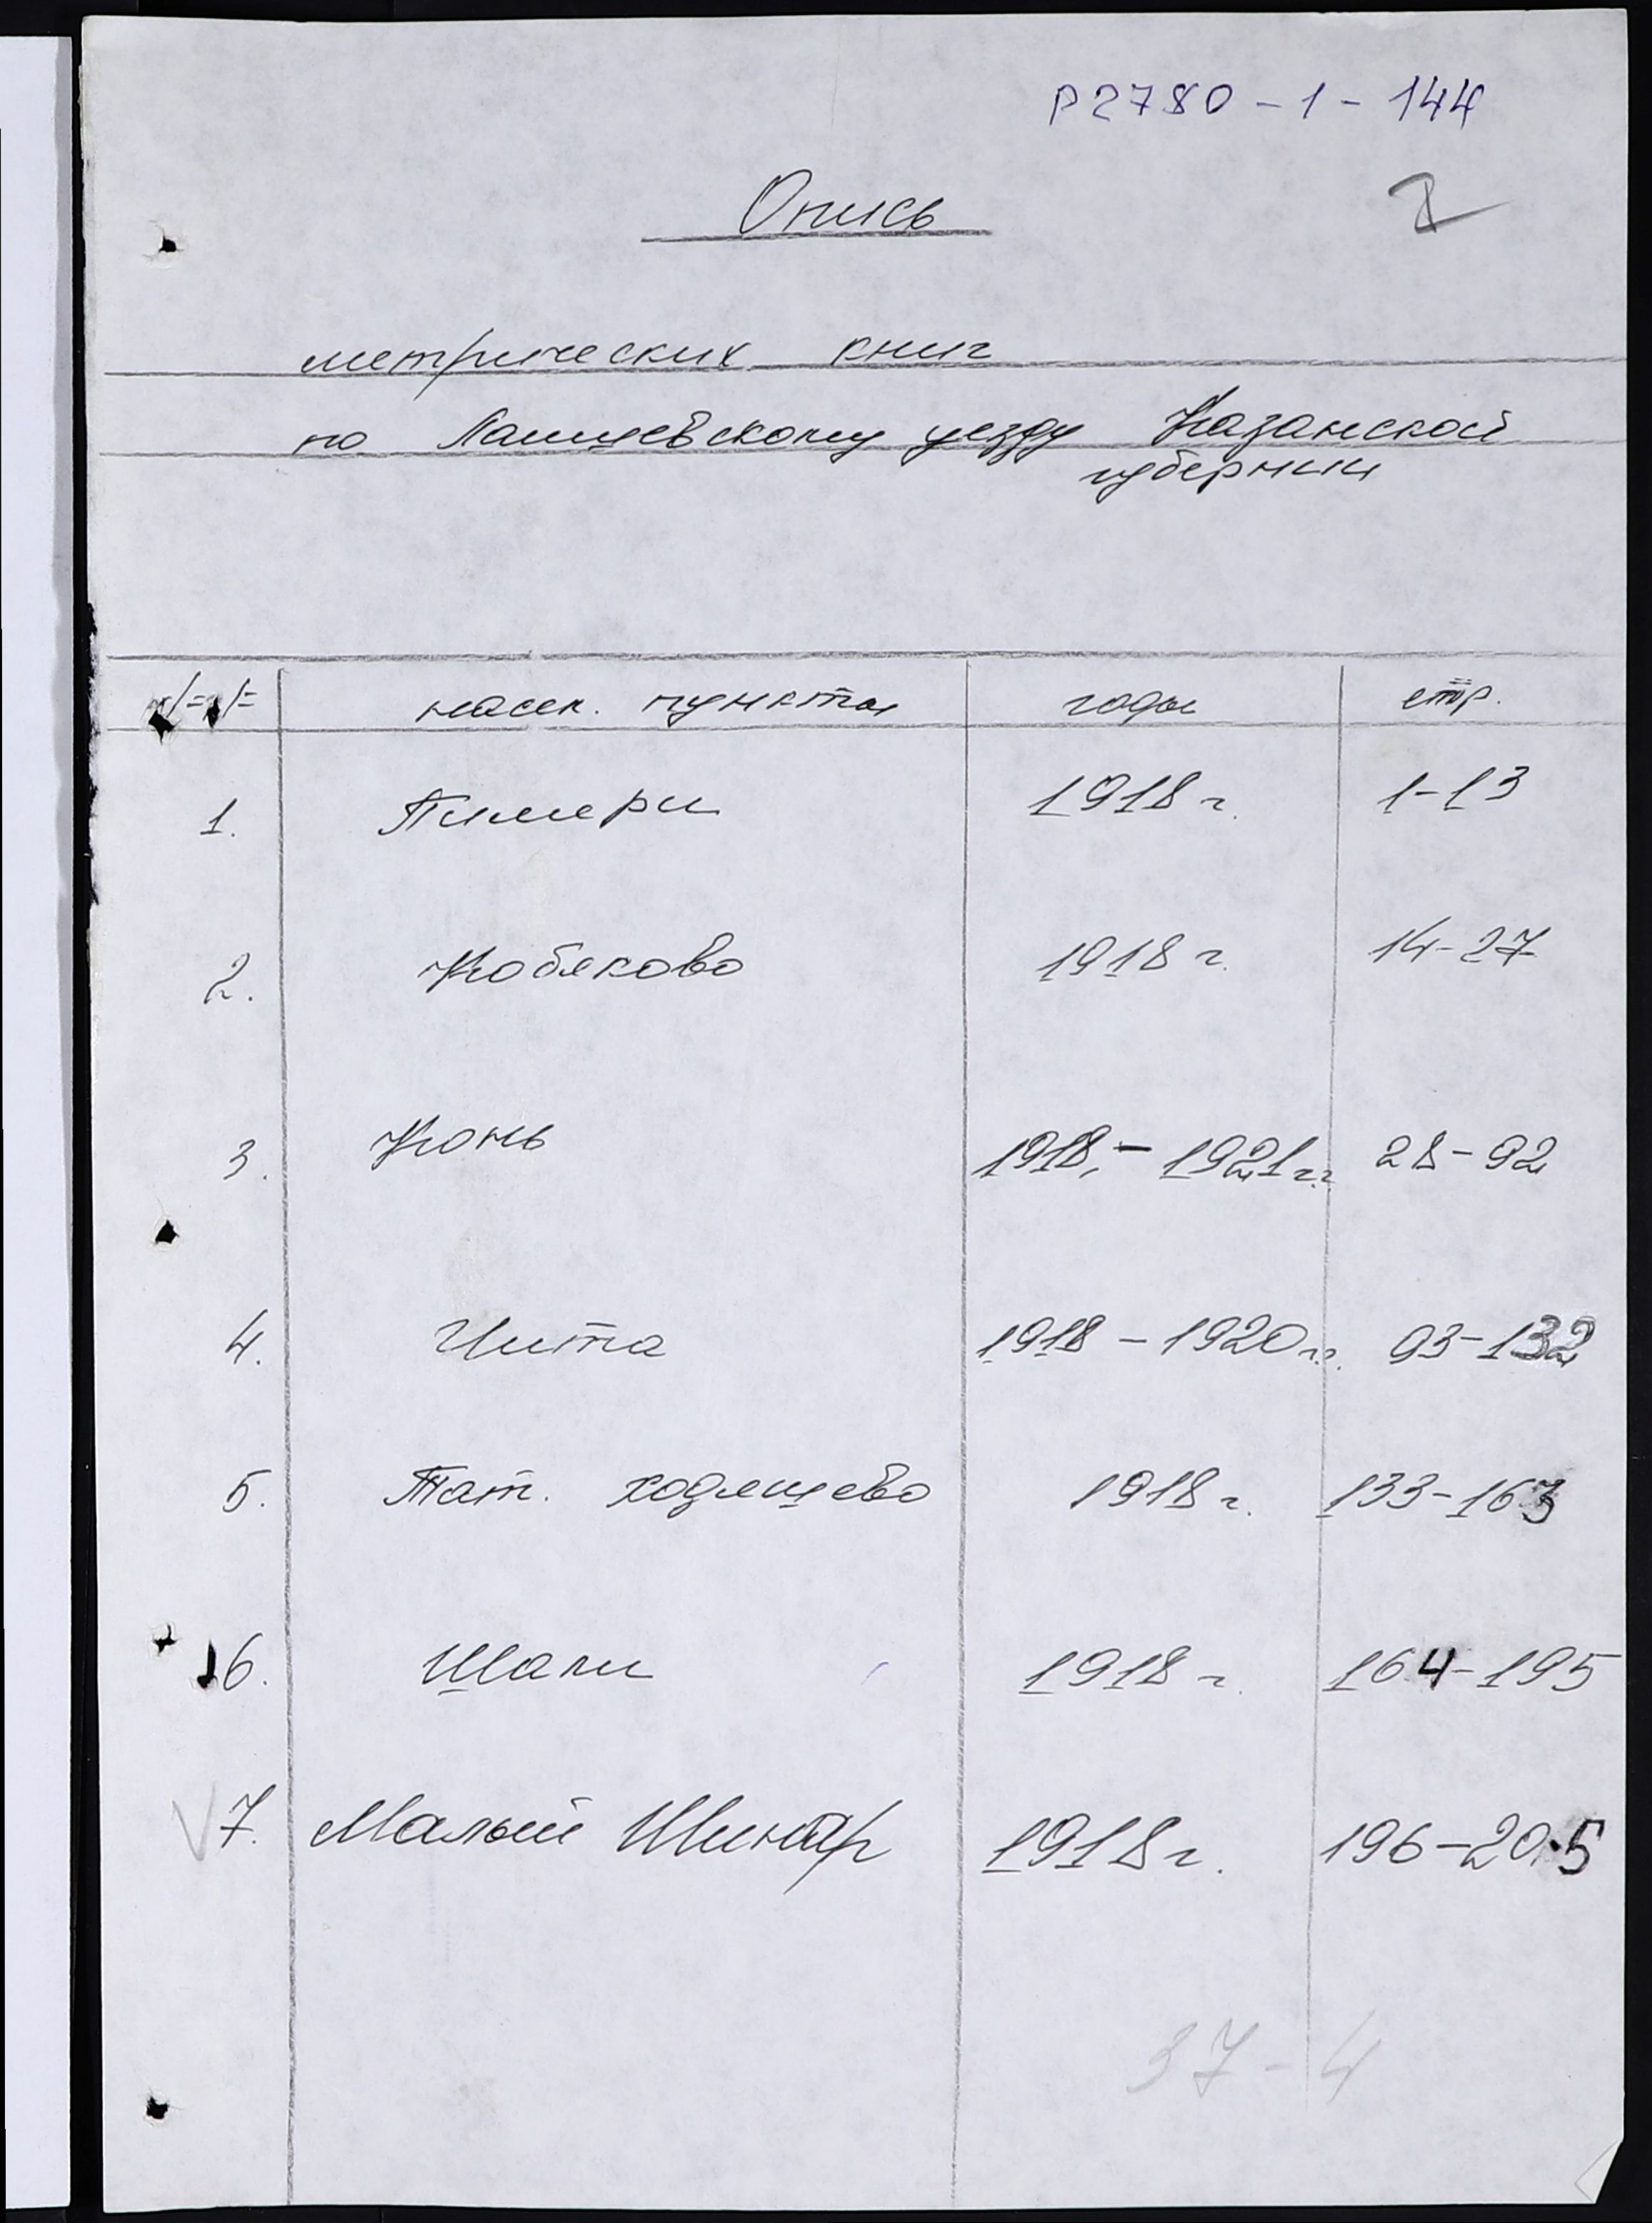 Р2780-1-144
Опись
2
метрических книг
по Лаишевскому уезду Казанской
губернии
насел. пункта годы стр.
1. Пимери 1918 г. 1-13
2. Кобяково 1918 г. 14-27
3. Конь 1918,- 1921 г.г. 28-92
4. Чита 1918 - 1920 г.г. 93-132
5. Тат. ходяшево 1918 г. 133-163
6. Шали 1918 г. 164-195
√ 7. Малый Шинар 1918 г. 196-205
37-4